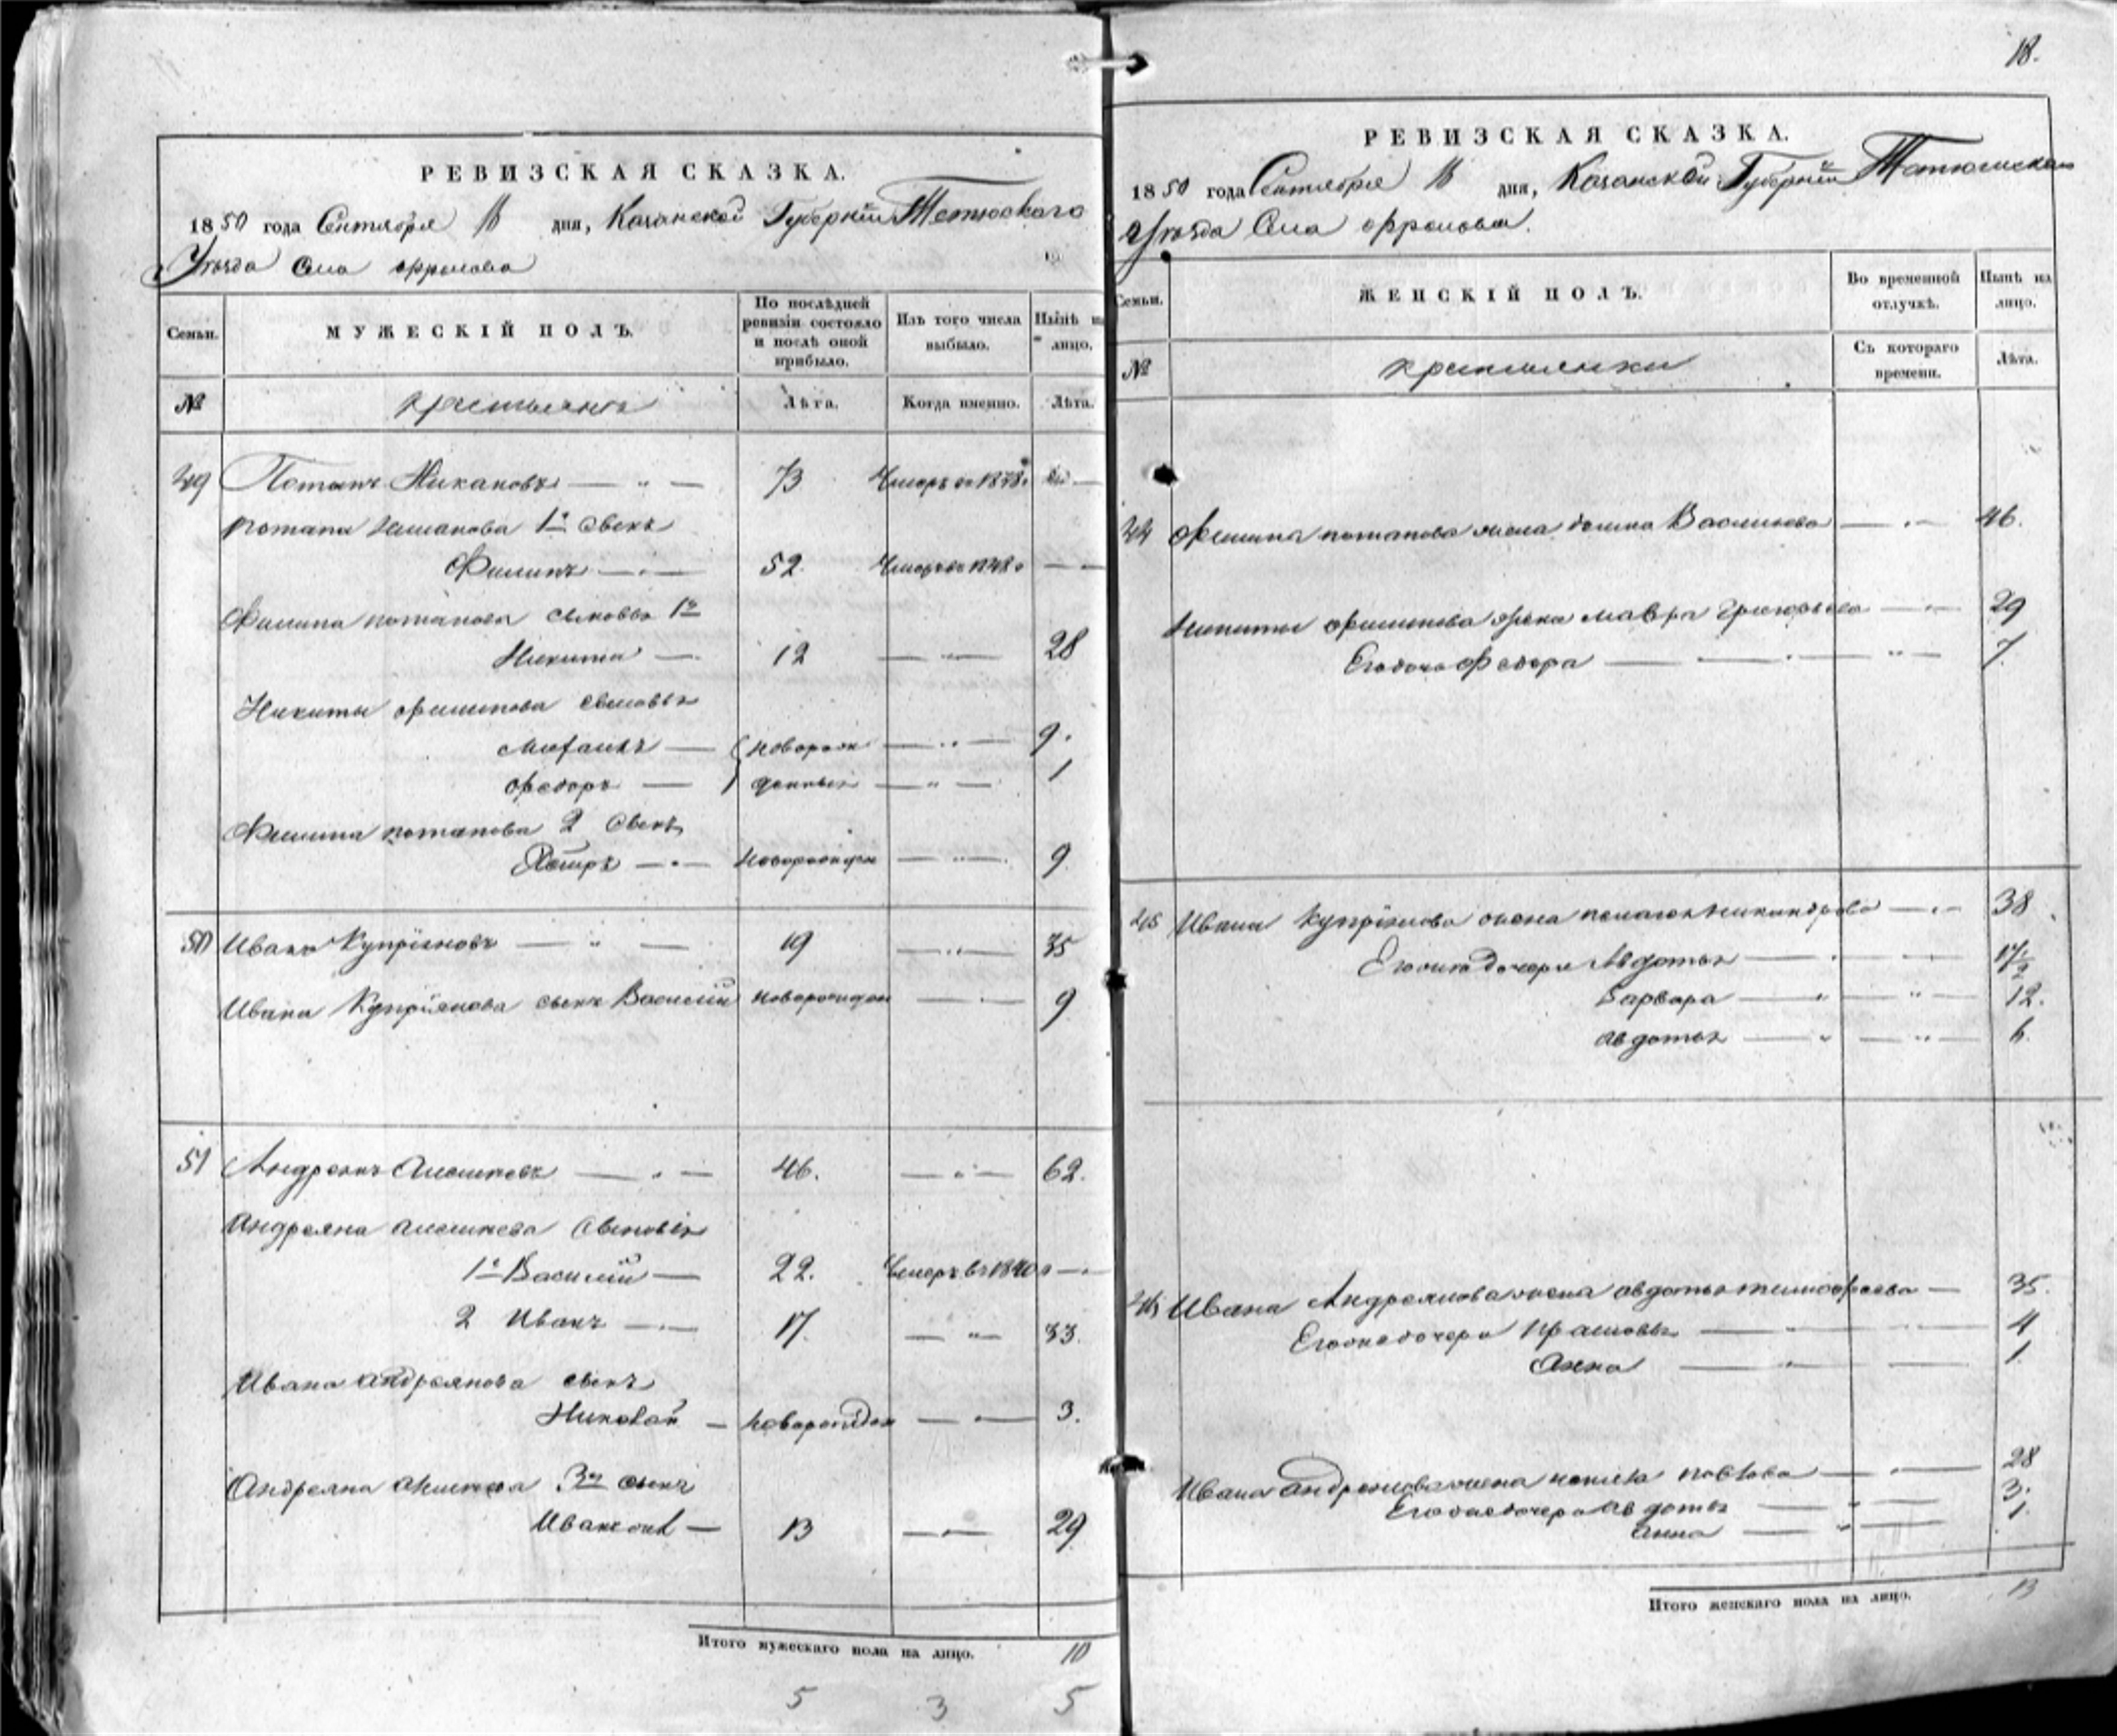 РЕВИЗСКАЯ СКАЗКА.
1850 года Сентября дня, Казанской Губернiи Тетюскаго
Уѣзда Села Фролова
Семьи. МУЖЕСКIЙ ПОЛЪ. По послѣдней ревизiи состояло и послѣ оной прибыло. Изъ того числа выбыло. Нынѣ на лицо.
№ крестьянъ Лѣта. Когда именно. Лѣта.
49 Потапъ 73 Умеръ —
Потапа 1й Сынъ
Филипъ — 52. —
Филипа потапова сыновья 1й
Никита — 12 — 28
Никиты филипова сыновья
— новорож — 9.
федоръ — денныя — 1
Филипа потапова 2 Сынъ
Петръ — новорожден — 9
50 Иванъ Купрiяновъ — 19 — 35
Ивана Купрiянова сынъ Василiй новорожден — 9
51 Андреянъ — 46. — 62.
Андреяна Сыновья
1й Василiй — 22. Умеръ въ 1840 —
2 Иванъ — 17. — 33.
Ивана андреянова сынъ
Николай — новорожден — 3.
Андреяна 3й сынъ
Иванъ — 13 — 29
Итого мужескаго пола на лицо. 10
5 3 5
18.
РЕВИЗСКАЯ СКАЗКА.
1850 года Сентября дня, Казанской Губернiи
Уѣзда Села Фролова.
Семьи. ЖЕНСКIЙ ПОЛЪ. Во временной отлучкѣ. Нынѣ на лицо.
№ крестьянки Съ котораго времени. Лѣта.
44 Филипа потапова жена Васильева — 46.
Никиты филипова жена мавра Григорьева — 29
Его дочь Федора — 7.
45 Ивана Купрiянова жена пелагея никандрова — 38
Его дочери Авдотья —
Варвара — 12.
авдотья — 6
46 Ивана Андреянова жена авдотья — 35.
Его дочери — 4
Анна — 1.
Ивана Андреянова жена — 28
Его дочери авдотья — 3.
анна — 1.
Итого женскаго пола на лицо. 13